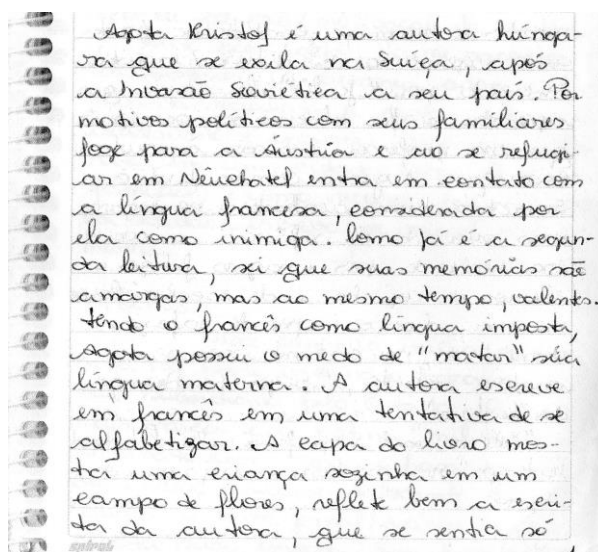 Agota Kristof é uma autora húnga-
ra que se exila na Suíça, após
a Invasão Soviética a seu país. Por
motivos políticos com seus familiares
foge para a Áustria e ao se refugi-
ar em Nêuchatel entra em contato com
a língua francesa, considerada por
ela como inimiga. Como já é a segun-
da leitura, sei que suas memórias são
amargas, mas ao mesmo tempo, valentes.
Tendo o francês como língua imposta,
Agota possui o medo de "matar" sua
língua materna. A autora escreve
em francês em uma tentativa de se
alfabetizar. A capa do livro mos-
tra uma criança sozinha em um
campo de flores, reflete bem a escri-
ta da autora, que se sentia só
spiral